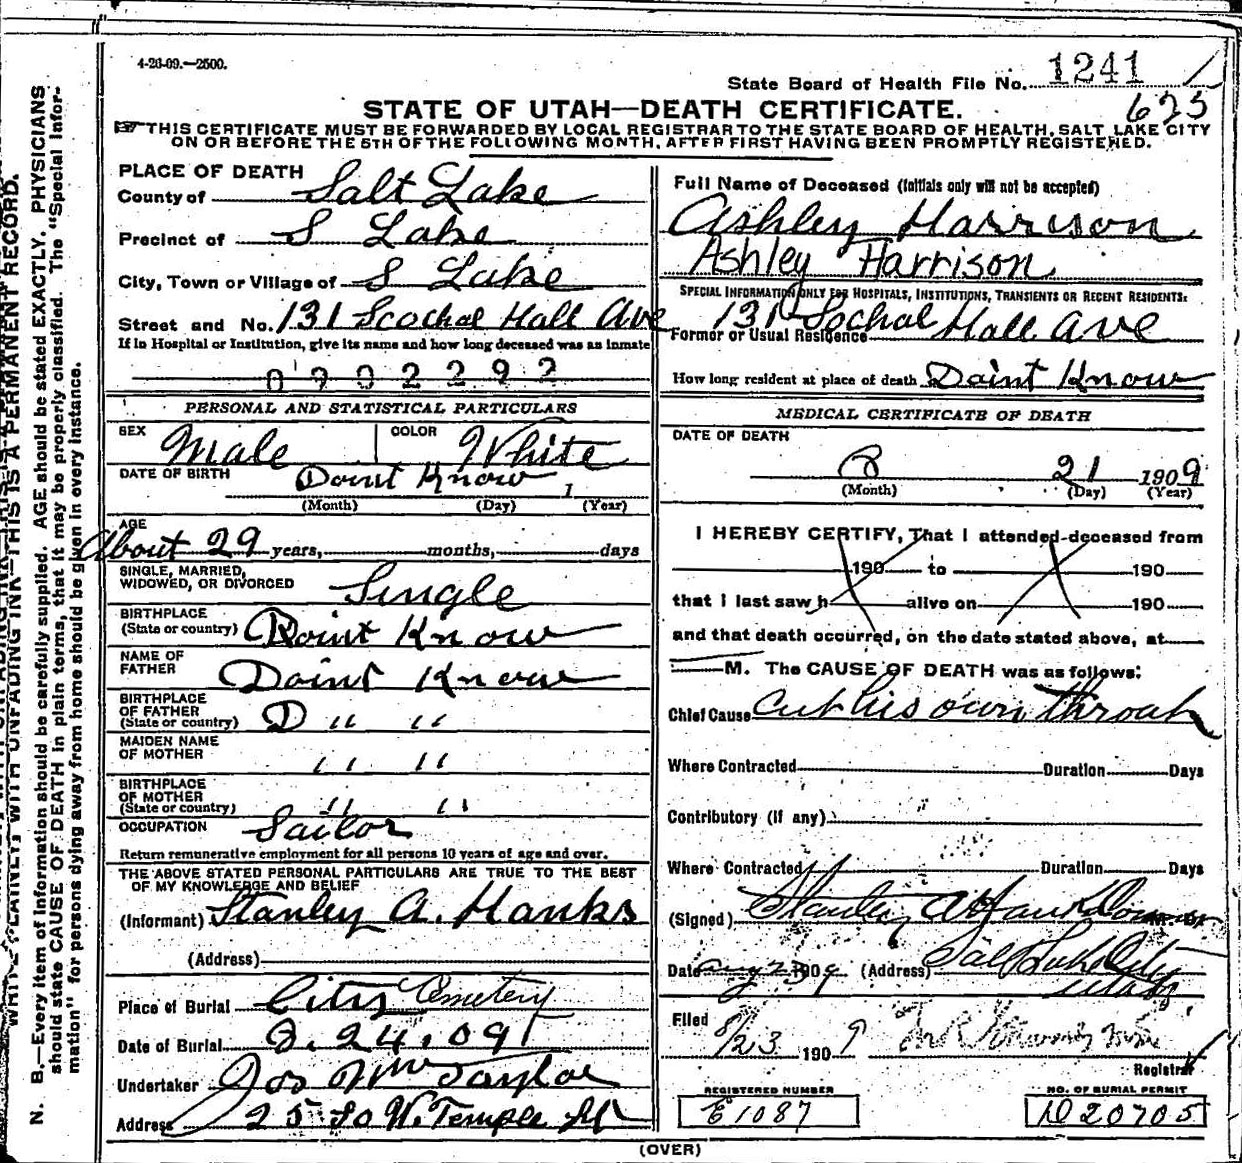 4-26-09.—2500.
State Board of Health File No. 1241
625
STATE OF UTAH—DEATH CERTIFICATE.
☞ THIS CERTIFICATE MUST BE FORWARDED BY LOCAL REGISTRAR TO THE STATE BOARD OF HEALTH, SALT LAKE CITY
ON OR BEFORE THE 5TH OF THE FOLLOWING MONTH, AFTER FIRST HAVING BEEN PROMPTLY REGISTERED.
PLACE OF DEATH
County of Salt Lake
Precinct of S Lake
City, Town or Village of S Lake
Street and No. 131 Scochal Hall Ave
If in Hospital or Institution, give its name and how long deceased was an inmate
0902292
Full Name of Deceased (Initials only will not be accepted)
Ashley Harrison
Ashley Harrison
SPECIAL INFORMATION ONLY FOR HOSPITALS, INSTITUTIONS, TRANSIENTS OR RECENT RESIDENTS:
Former or Usual Residence 131 Sochal Hall Ave
How long resident at place of death Doint Know
PERSONAL AND STATISTICAL PARTICULARS
SEX Male COLOR White
DATE OF BIRTH Doint Know 1
(Month) (Day) (Year)
AGE
About 29 years, months, days
SINGLE, MARRIED,
WIDOWED, OR DIVORCED Single
BIRTHPLACE
(State or country) Doint Know
NAME OF
FATHER Doint Know
BIRTHPLACE
OF FATHER
(State or country) D " "
MAIDEN NAME
OF MOTHER " "
BIRTHPLACE
OF MOTHER
(State or country) " "
OCCUPATION Sailor
Return remunerative employment for all persons 10 years of age and over.
THE ABOVE STATED PERSONAL PARTICULARS ARE TRUE TO THE BEST
OF MY KNOWLEDGE AND BELIEF
(Informant) Stanley A. Hanks
(Address)
Place of Burial City Cemetery
Date of Burial 8.24.09
Undertaker Jos Wm Taylor
Address 25 So W. Temple St
MEDICAL CERTIFICATE OF DEATH
DATE OF DEATH
8 21 1909
(Month) (Day) (Year)
I HEREBY CERTIFY, That I attended deceased from
190 to 190
that I last saw h alive on 190
and that death occurred, on the date stated above, at
M. The CAUSE OF DEATH was as follows:
Chief Cause Cut his own throat
Where Contracted Duration Days
Contributory (if any)
Where Contracted Duration Days
(Signed) Stanley A Hanks M. D.
Date Aug 23 1909 (Address) Salt Lake City
Utah
Filed 8/23 1909
Registrar
REGISTERED NUMBER
E1087
NO. OF BURIAL PERMIT
D20705
(OVER)
WRITE PLAINLY WITH UNFADING INK—THIS IS A PERMANENT RECORD.
N. B.—Every item of information should be carefully supplied. AGE should be stated EXACTLY. PHYSICIANS
should state CAUSE OF DEATH in plain terms, that it may be properly classified. The "Special Infor-
mation" for persons dying away from home should be given in every instance.